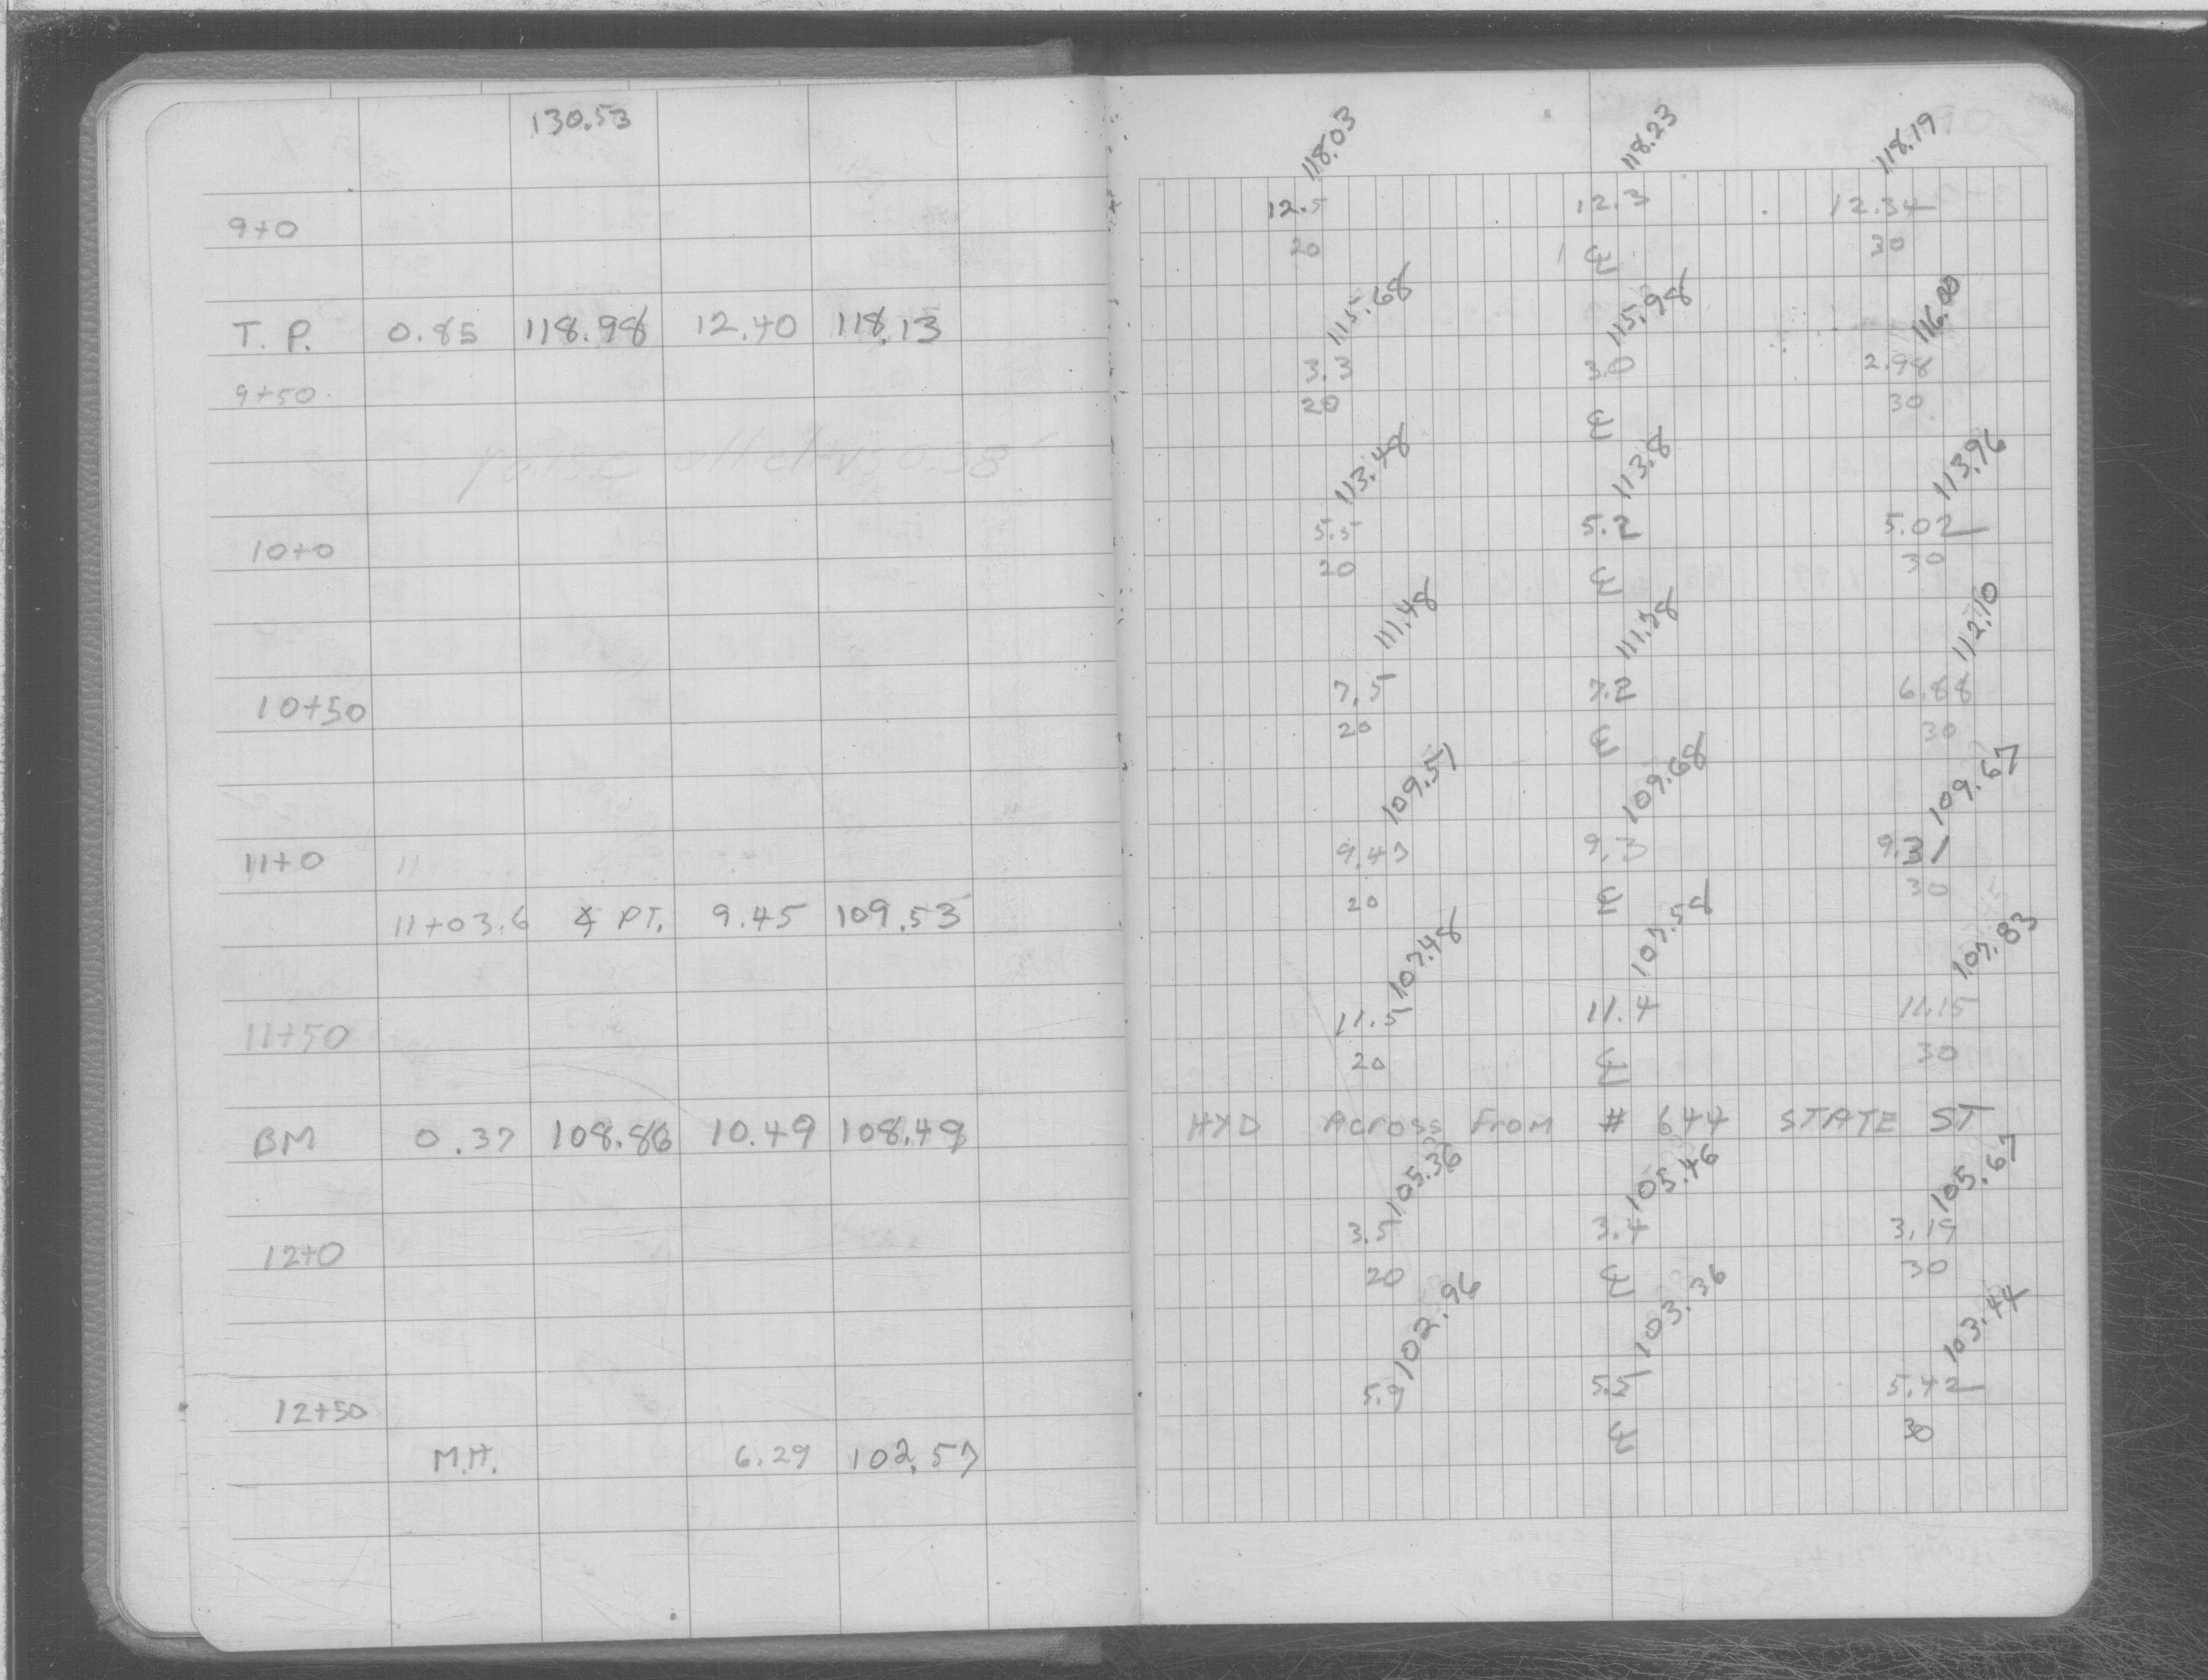 130.53 118.03 118.23 118.19
9+0 12.5 12.3 12.34
20 ℄ 30
115.68 115.98 116.00
T. P. 0.85 118.98 12.40 118.13
9+50 3.3 3.0 2.98
20 ℄ 30
raise all elevs 0.38
113.48 113.8 113.96
10+0 5.5 5.2 5.02
20 ℄ 30
111.48 111.78 112.10
10+50 7.5 7.2 6.88
20 ℄ 30
109.51 109.68 109.67
11+0 11 9.47 9.3 9.31
20 ℄ 30
11+03.6 ∡ PT. 9.45 109.53
107.48 107.58 107.83
11+50 11.5 11.4 11.15
20 ℄ 30
BM 0.37 108.86 10.49 108.49 HYD Across From # 644 STATE ST
105.36 105.46 105.67
12+0 3.5 3.4 3.19
20 ℄ 30
102.96 103.36 103.44
12+50 5.9 5.5 5.42
℄ 30
M.H. 6.29 102.57